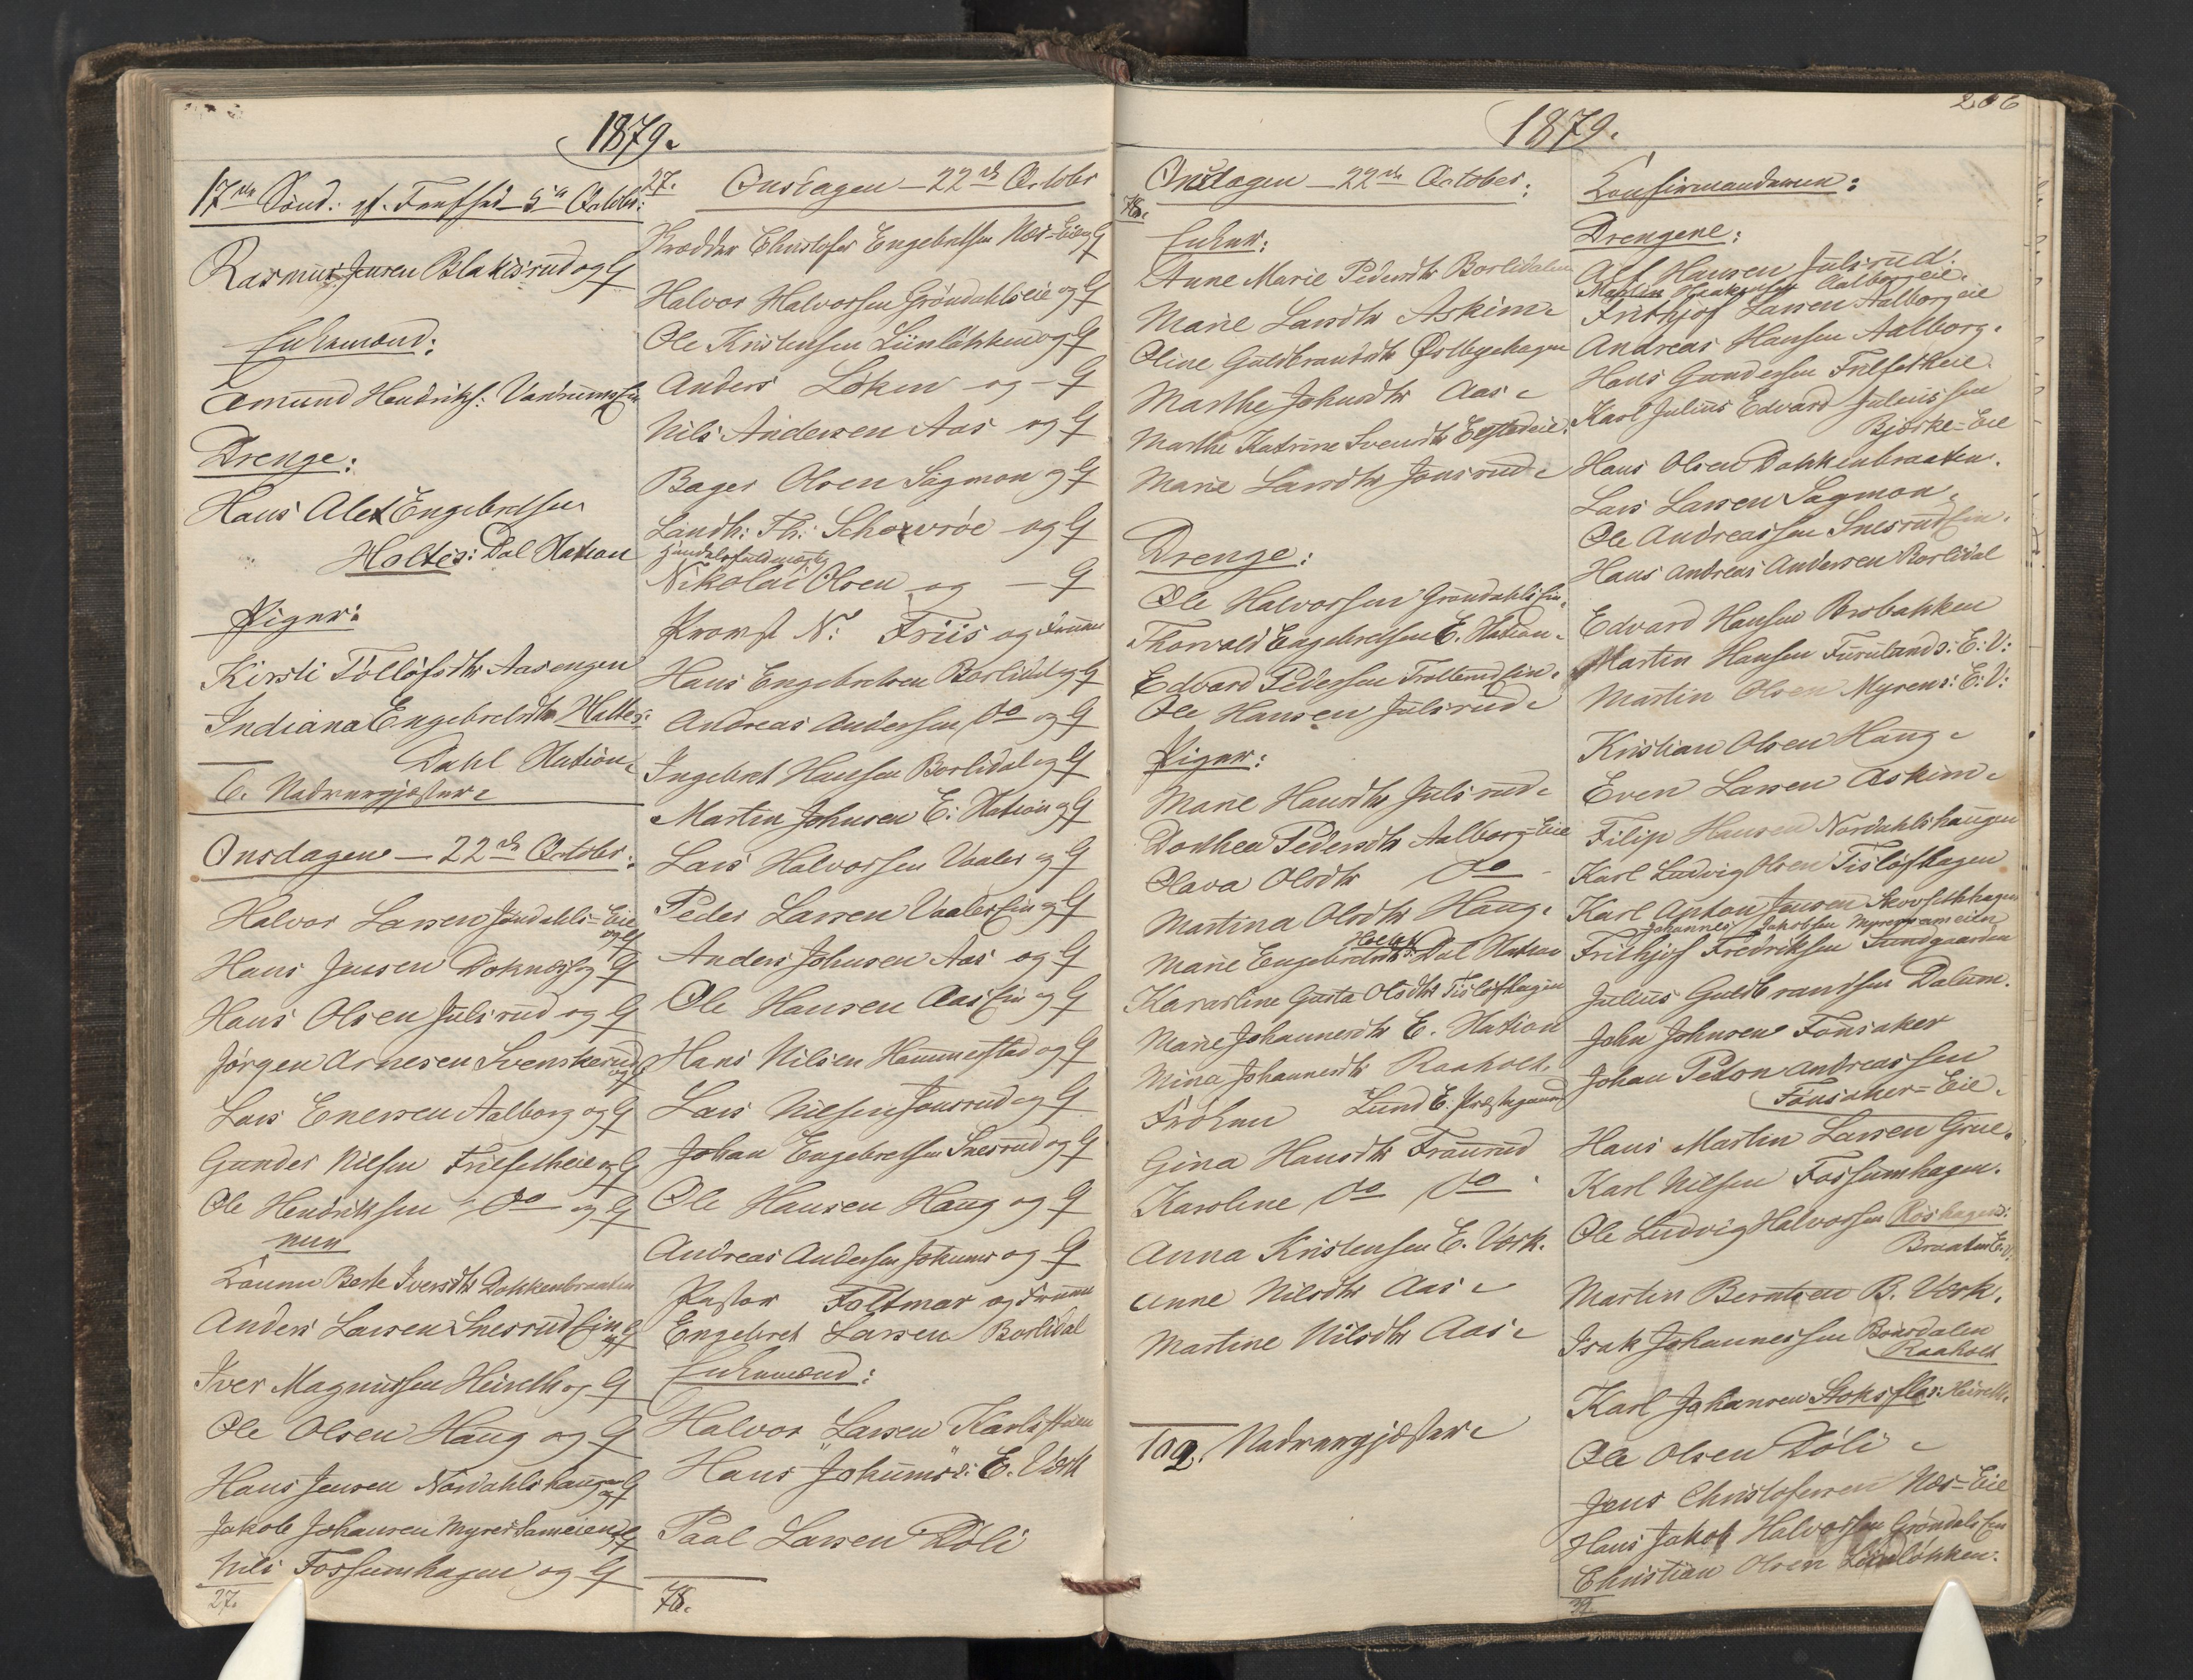 1879.
17de Sönd: ef. Trefhed 5te Octobr:
Rasmus Jensen Blakisrud og G
Enkemænd:
Emund Hendriks: Vandrums Ein
Drenge:
Hans Alex Engebretsen
Holtes: Dal Station
Piger:
Kirsti Tollofsdtr Aasengen
Indiana Engebretsdtr Holtes:
Dahl Station.
6. Nadvergjæster.
Onsdagen 22de Octobr:
Halvor Larsen Jöndahls-Eie og G
Hans Jensen Doknes og G
Hans Olsen Julsrud og G
Jörgen Arnesen Svenskerud og G
Lars Enersen Aalborg og G
Gunder Nilsen Trilsetheie og G
Ole Hendriksen do og G
mur
Konen Berte Iversdtr Dokkenbraaten
Anders Larsen Snesrud Ein og G
Iver Magnussen Heiseth og G
Ole Olsen Haug og G
Hans Jensen Nordahlshaugen og G
Jakob Johansen Myrer og G
Nils Fossumhagen og G
27.
27.
Onsdagen 22de Octobr
Christofer Engebretsen Næs-Eie og G
Halvor Halvorsen Gröndahlseie og G
Ole Kristensen Liinlökken og G
Anders Löken og G
Nils Andersen Aas og G
Bager Olsen Sagmon og G
Landh: Th: Schovröe og G
Handelsfuldmægtig
Nikolai Olsen og G
Provst N: Friis og Frue
Hans Engebretsen Borlidal og G
Andreas Andersen do og G
Ingebret Hansen Borlidal og G
Martin Johnsen E: Station og G
Lars Halvorsen Vaaler og G
Peder Larsen Vaaler Ein og G
Anders Johnsen Aas og G
Ole Hansen Aas Ein og G
Hans Nilsen Hammerstad og G
Lars Nilsen Jonsrud og G
Johan Engebretsen Snesrud og G
Ole Hansen Haug og G
Andreas Andersen Johnms og G
Pastor Foltmar og Frue
Engebret Larsen Borlidal
Enkemænd:
Halvor Larsen Karlsstuen
Hans Johnms: E. Værk
Paal Larsen Döli
78.
1879.
206
Onsdagen 22de October:
78.
Enker:
Anne Marie Pedersdtr Borlidalen
Marie Larsdtr Askim
Oline Guldbrandsdtr Östbyehagen
Marthe Johnsdtr Aas
Marthe Katrine Svendsdtr Egstadeie
Marie Larsdtr Jonsrud
Drenge:
Ole Halvorsen Gröndahls Ein.
Thorvald Engebretsen E. Station.
Edvard Pedersen Trollerud Ein.
Ole Hansen Julsrud
Piger:
Marie Hansdtr Julsrud
Dorthea Pedersdtr Aalborg-Eie
Olava Olsdtr do
Martina Olsdtr Haug.
Holtes
Marie Engebretsdtr: Dal Station
Karoline Gusta Olsdtr Tislöfhagen
Marie Johannesdtr E. Station
Mina Johannesdtr Raaholt.
Fröken Lund E. Præstegaard
Gina Hansdtr Traurud
Karoline do do
Anna Kristensen E. Værk.
Anne Nilsdtr Aas
Martine Nilsdtr Aas
102. Nadvergjæster
Konfirmanderne:
Drengene:
Alf Hansen Julsrud.
Martin Haakensen Aalborgeie.
Frithjof Larsen Aalborgeie
Andreas Hansen Aalborg.
Hans Gundersen Trilsetheie.
Karl Julius Edvard Juliussen
Björke-Eie
Hans Olsen Dokkenbraaten.
Lars Larsen Sagmon.
Ole Andreassen Snesrud Ein.
Hans Andreas Andersen Borlidal
Edvard Hansen Brobakken
Martin Hansen Furulands: E: V:
Martin Olsen Myrens: E: V:
Kristian Olsen Haug
Even Larsen Askim
Filip Hansen Nordahlshaugen
Karl Ludvig Olsen Tislöfhagen
Karl Anton Jensen Skovsethhagen
Johannes Jakobsen
Frithjof Fredriksen Sundgaarden
Julius Guldbrandsen Dalum.
John Johnsen Fonsaker
Johan Peton Andreassen
Fonsaker-Eie.
Hans Martin Larsen Grue.
Karl Nilsen Fossumhagen.
Ole Ludvig Halvorsen Röshagen:
Braaten E. V.
Martin Berntsen B. Værk.
Isak Johannessen Bonsdalen
Raaholt
Karl Johansen Stoksflos: Heiseth.
Ole Olsen Döli
Jens Christofersen Næs-Eie
Hans Jakob Halvorsen Gröndals Ein
Christian Olsen Liinlökken.
32